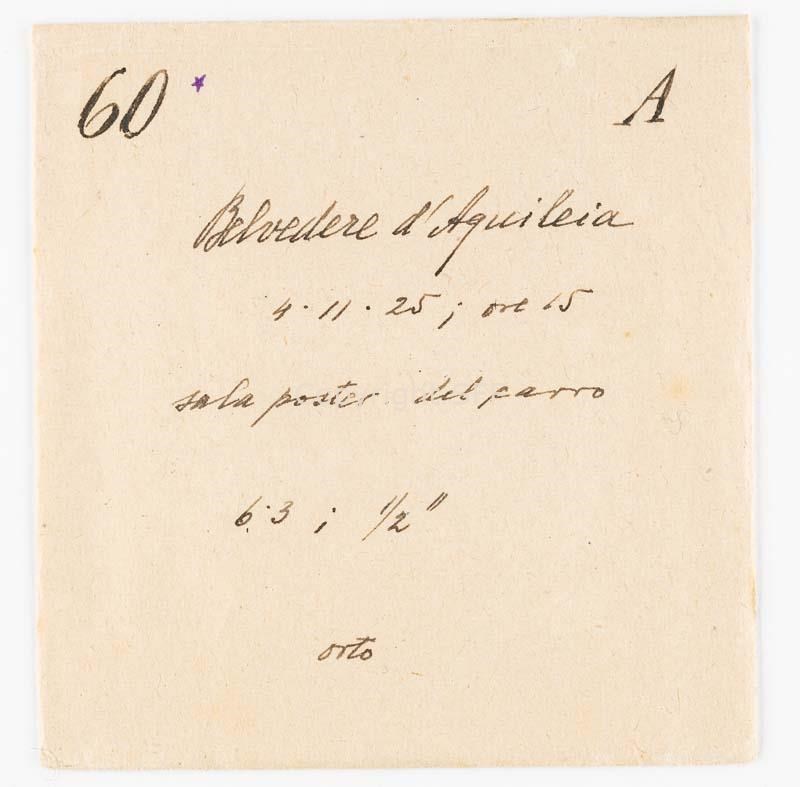 60 * A
Belvedere d'Aquileia
4·11·25; ore 15
sala poster del parro
6.3 ; 1/2"
orto